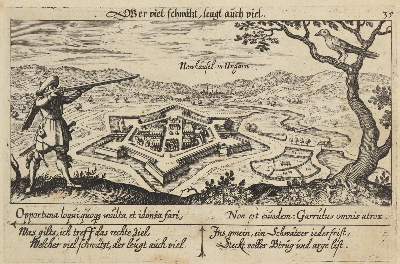 Wer viel schwätzt, leugt auch viel.
35
Newheusel in Ungarn
Opportuna loqui quoque multa et idonea fari,
Non est eiusdem: Garrulus omnis atrox.
Was gilts, ich treff das rechte Ziel,
Welcher viel schwätzt, der leugt auch viel.
Ins gmein, ein Schwatzer ieder frist.
Steckt voller Btrug und argr list.